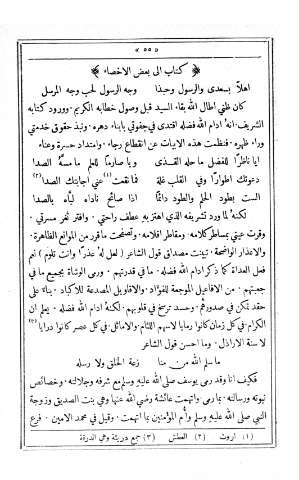 ﴿ ٥٥ ﴾
﴿ كتاب الى بعض الاخصاء ﴾
اهلا بسعدى والرسول وحبذا وجه الرسول لحب وجه المرسل
كان ظني اطال الله بقاء السيد قبل وصول خطابه الكريم. وورود كتابه
الشريف. انه ادام الله فضله اقتدى في جفوتي بابناء دهره. ونبذ حقوق خدمتي
وراء ظهره. فنظمت هذه الابيات عن انقطاع رجاء. وامتداد حسرة وعناء
ايا ناظرا للفضل ما حله القذى ويا صارما للعلم ما مسه الصدا
دعوتك اطوارا وفي القلب غلة فما نقعت (١) عني اجابتك الصدا (٢)
الست بطود الحلم والطود دائما اذا صائح ناداه لباه بالصدا
لكنه لما ورد تشريفه الذي اهتز به عطف راحتي. وافتر ثغر مسرتي.
وقرت عيني بمساطر كلامه. ومقاطر اقلامه. وتصفحت ما قرر من الموانع الظاهرة.
والاعذار الواضحة. تبينت مصداق قول الشاعر (لعل له عذرا وانت تلوم) نعم
فعل العداة كما ذكر ادام الله فضله. ما في قدرتهم. ورمى الوشاة بجميع ما في
جعبتهم. من الافاعيل الموجعة للفؤاد. والاقاويل المصدعة للاكباد. بناء على
حقد تمكن في صدورهم. وحسد ترسخ في قلوبهم. لكنه ادام الله فضله. يعلم ان
الكرام في كل زمان كانوا رمايا لاسهم اللئام. والاماثل في كل عصر كانوا درايا (٣)
لاسنة الاراذل. وما احسن قول الشاعر
ما سلم الله من منا زعة الخلق ولا رسله
فكيف انا وقد رمى يوسف صلى الله عليه وسلم مع شرفه وجلالته. وخصائص
نبوته ورسالته. بما رمى واتهمت عائشة رضي الله عنها وهي بنت الصديق وزوجة
النبي صلى الله عليه وسلم وأم المؤمنين بما اتهمت. وقيل في محمد الامين. فرع
(١) اروت (٢) العطش (٣) جمع دريئة وهي الدرقة